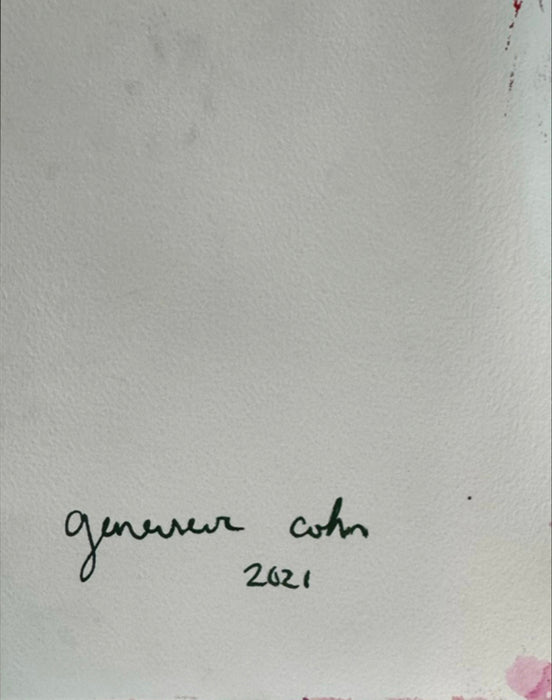 genevieve cohn
2021